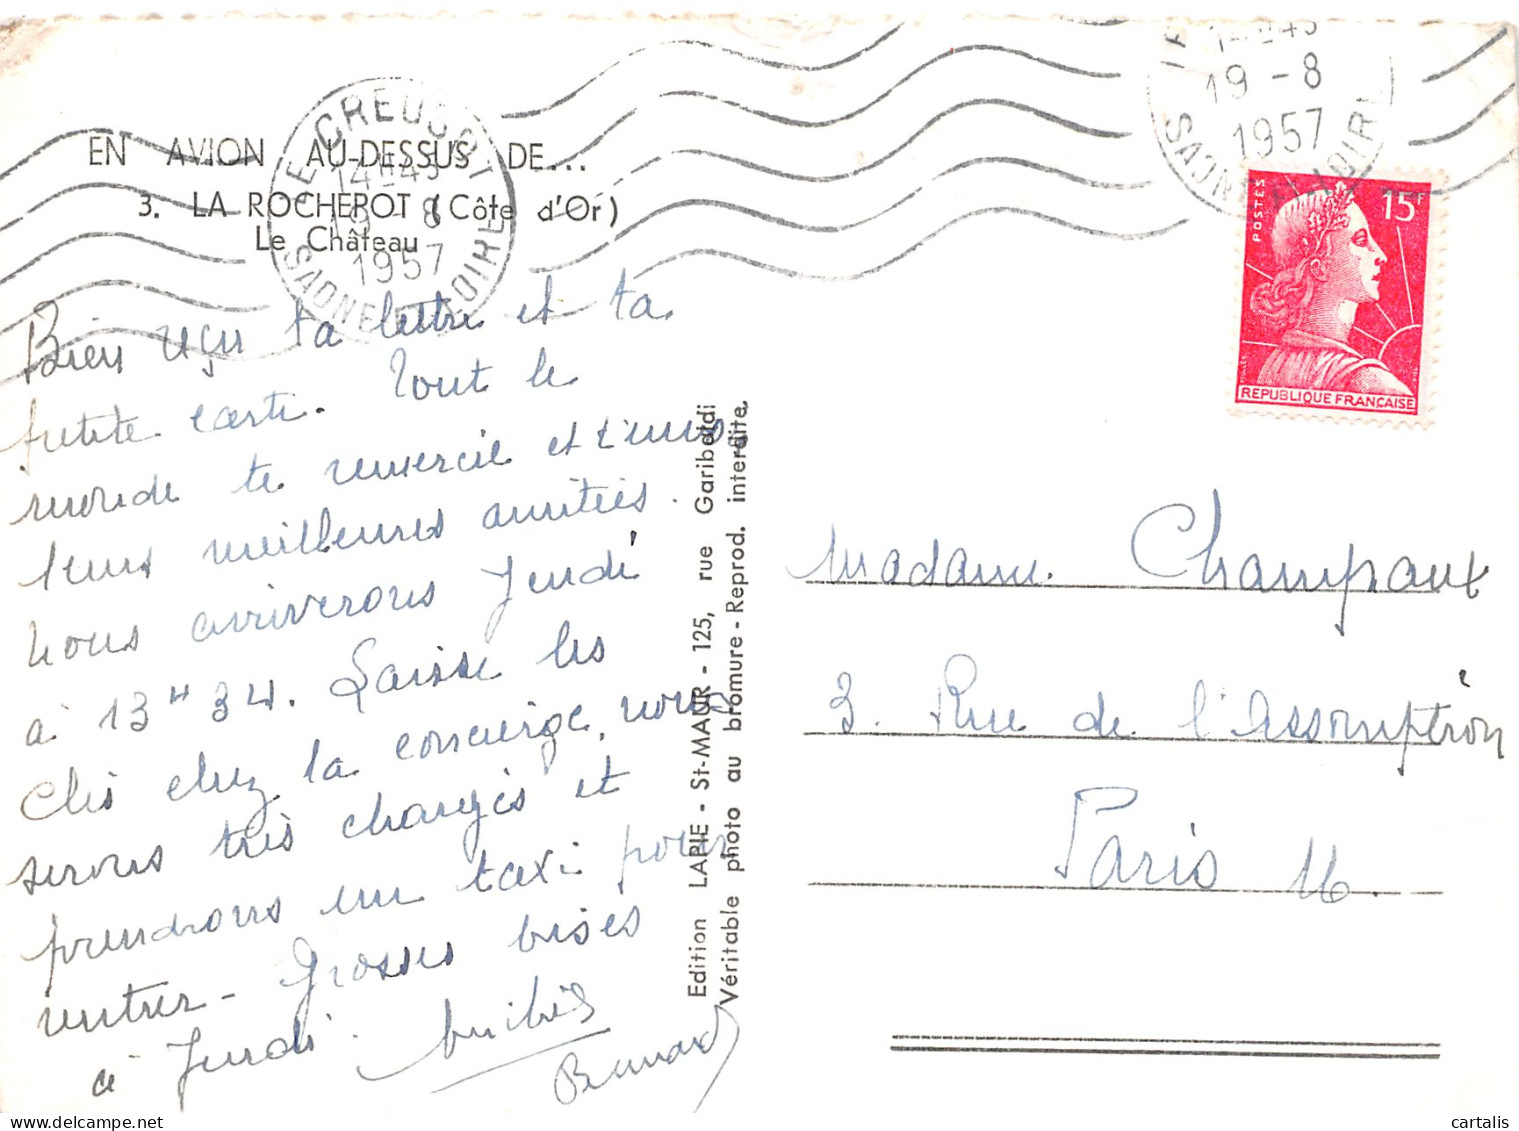 EN AVION AU-DESSUS DE...
3. LA ROCHEPOT (Côte d'Or)
Le Château
LE CREUSOT
14H45
19 - 8
1957
SAONE ET LOIRE
14H45
19 - 8
1957
SAONE ET LOIRE
POSTES
15F
REPUBLIQUE FRANÇAISE
Bien reçu ta lettre et ta
petite carte. Tout le
monde te remercie et t'envoie
leurs meilleures amitiés.
Nous arriverons Jeudi
à 13H34. Laisse les
Clés chez la concierge, nous
serons très chargés et
prendrons un taxi pour
rentrer - Grosses bises
à Jeudi.
Bernard
Edition LAPIE - St-MAUR - 125, rue Garibaldi
Véritable photo au bromure - Reprod. interdite.
Madame Champaux
3. Rue de l'Assomption
Paris 16.
cartalis